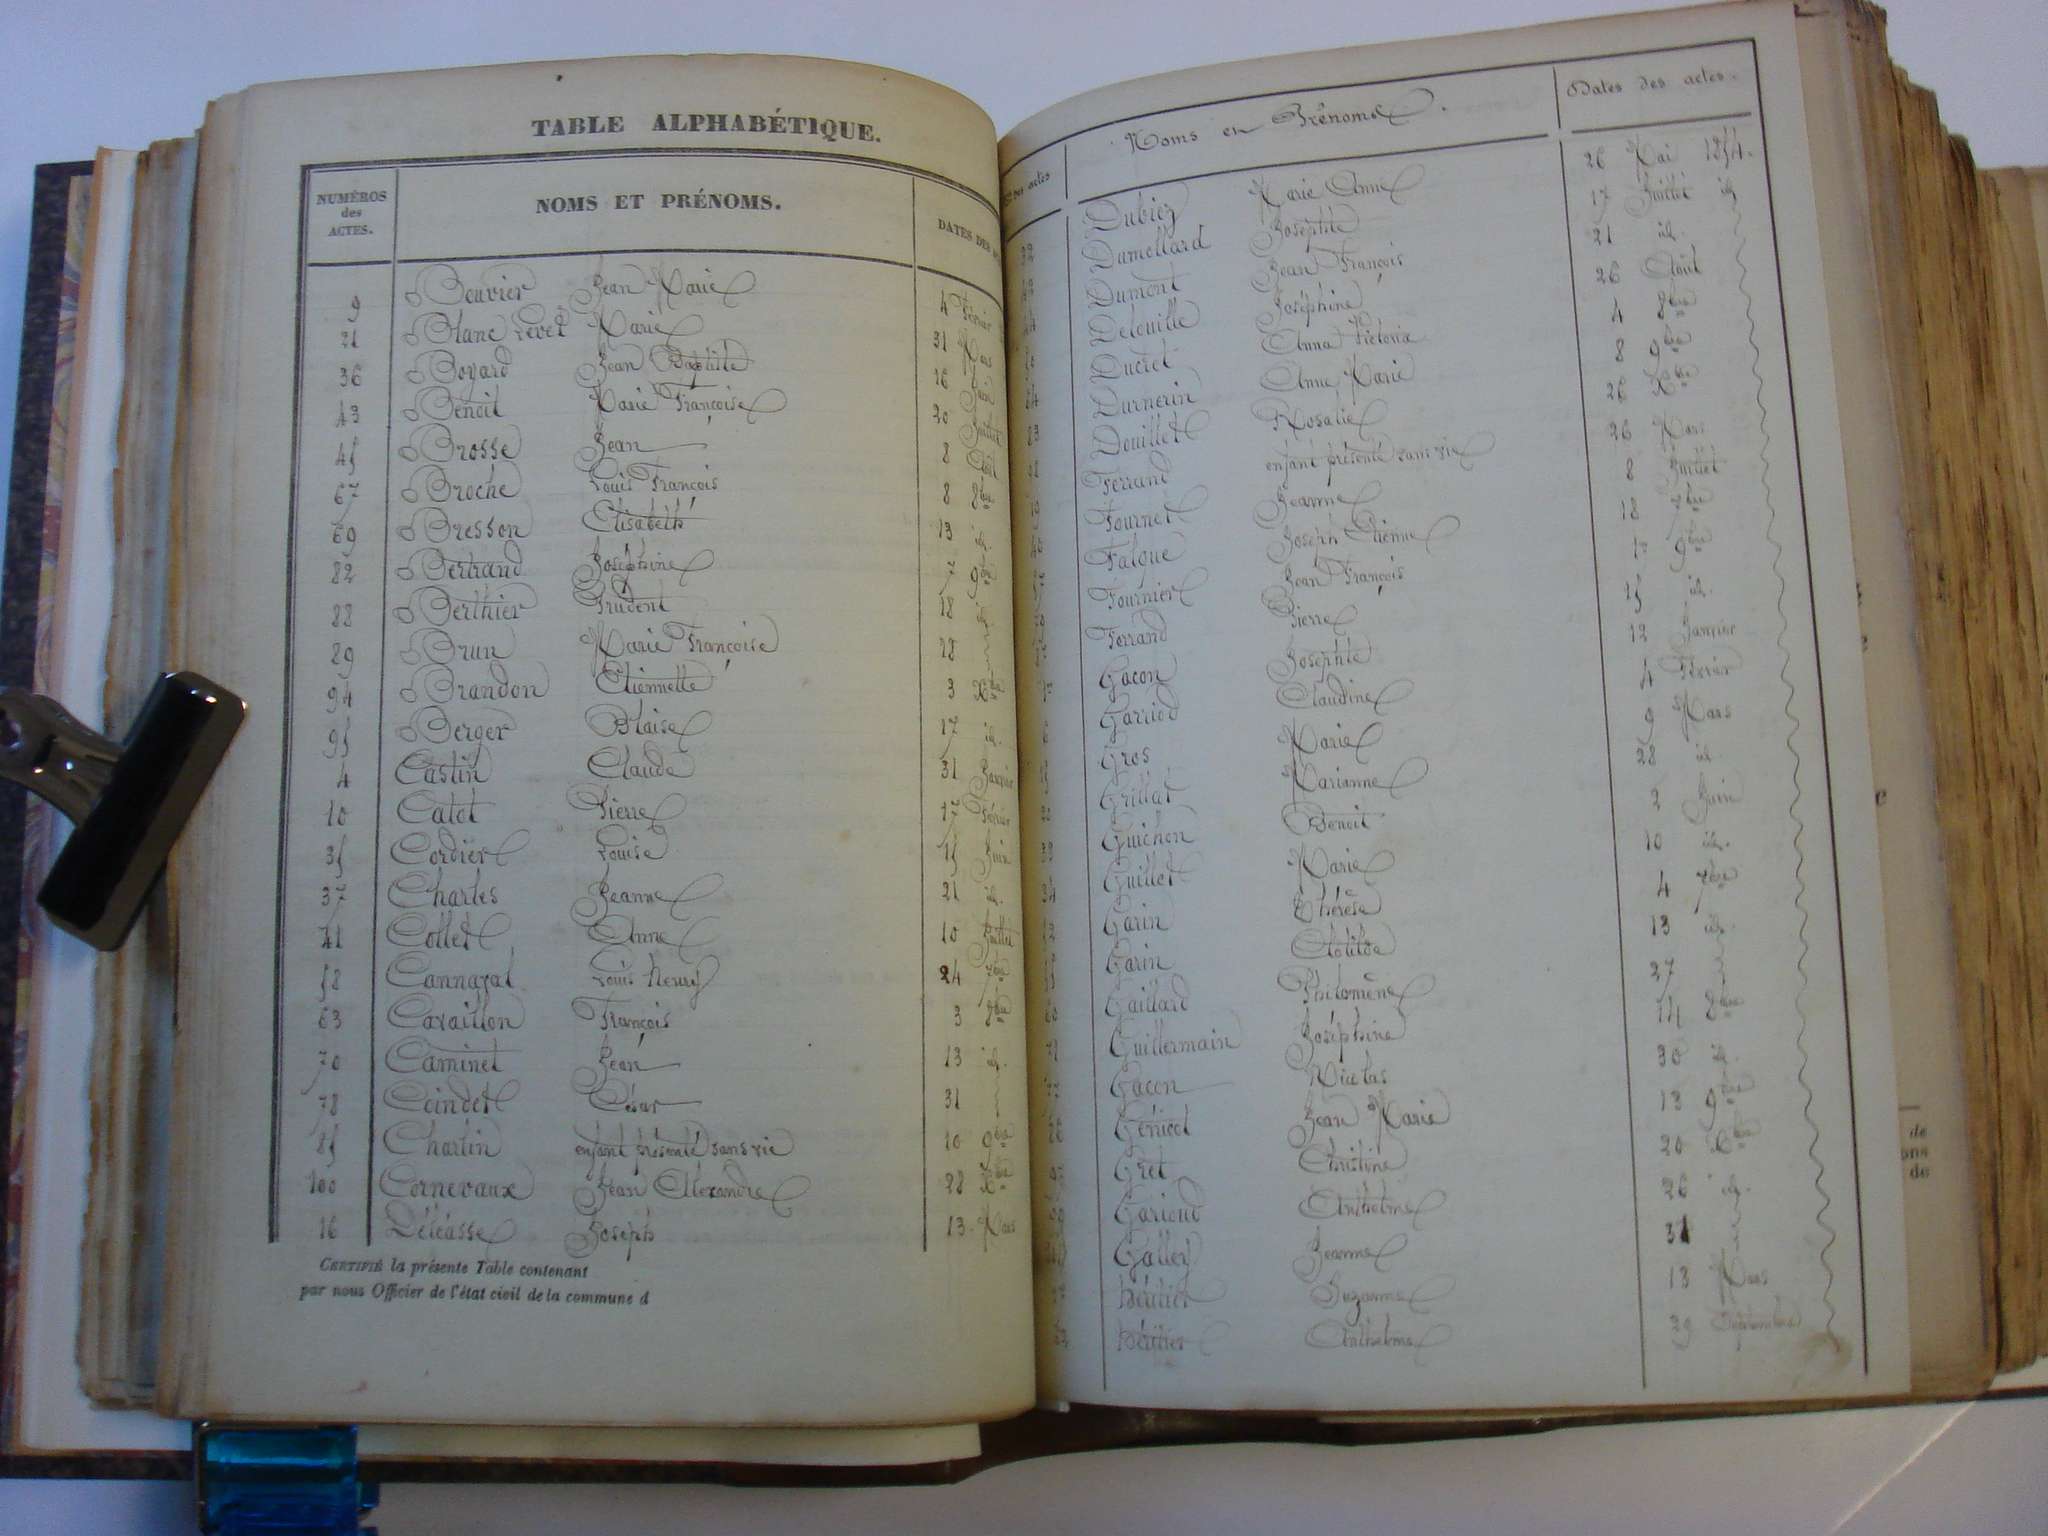 TABLE ALPHABÉTIQUE.
NUMÉROS des ACTES. NOMS ET PRÉNOMS. DATES DES
9 Bouvier Jean Marie 4 Février
21 Blanc Levet Marie 31 Mars
36 Boyard Jean Baptiste 16 Juin
43 Benoit Marie Françoise 20 Juillet
45 Brosse Jean 8 Août
67 Broche Louis François 8 8bre
69 Bresson Elisabeth 13 id.
82 Bertrand Joséphine 7 9bre
88 Berthier Prudent 18 id.
89 Brun Marie Françoise 28
94 Brandon Etiennette 3 Xbre
95 Berger Blaise 17 id.
4 Castin Claude 31 Janvier
10 Catet Pierre 17 Février
35 Cordier Louise 15 Juin
37 Charles Jeanne 21 id.
41 Collet Anne 10 Juillet
58 Cannazat Louis henry 24 7bre
63 Cavaillon François 3 8bre
70 Caminet Jean 13 id.
78 Coindet César 31
85 Charlin enfant présenté sans vie 10 9bre
100 Cornevaux Jean Alexandre 28 Xbre
16 Déléasse Joseph 13 Mars
CERTIFIÉ la présente Table contenant
par nous Officier de l'état civil de la commune d
des actes Noms et Prénoms. Dates des actes.
Dubiez Marie Anne 26 Mai 1854.
Dumollard Josephte 17 Juillet id
Dumont Jean François 21 id.
Delouille Joséphine 26 Août
Ducret Anna Victoria 4 8bre
Durnerin Anne Marie 8 9bre
83 Douillet Rosalie 26 Xbre
Ferrand enfant présenté sans vie 26 Mars
Fournet Jeanne 8 Juillet
Falque Joseph Etienne 18 7bre
Fournier Jean François 9bre
Ferrand Pierre 25 id.
Gacon Josephte 12 Janvier
Garriod Claudine 4 Février
Gros Marie 9 Mars
Grillat Marianne 28 id
Guichon Benoit 2 Juin
Guillet Marie 10 id.
Garin Thérèse 4 7bre
Garin Clotilde 13 id.
Gaillard Philomène 27
Guillermain Joséphine 14 8bre
Gacon Nicolas 30 id.
Génicot Jean Marie 13 9bre
Gret Christine 20 Xbre
Gariond Anthelme 26 id.
Galley Jeanne 31
héritier Suzanne 13 Mars
héritier Anthelme 29 Septembre
de
ons
de